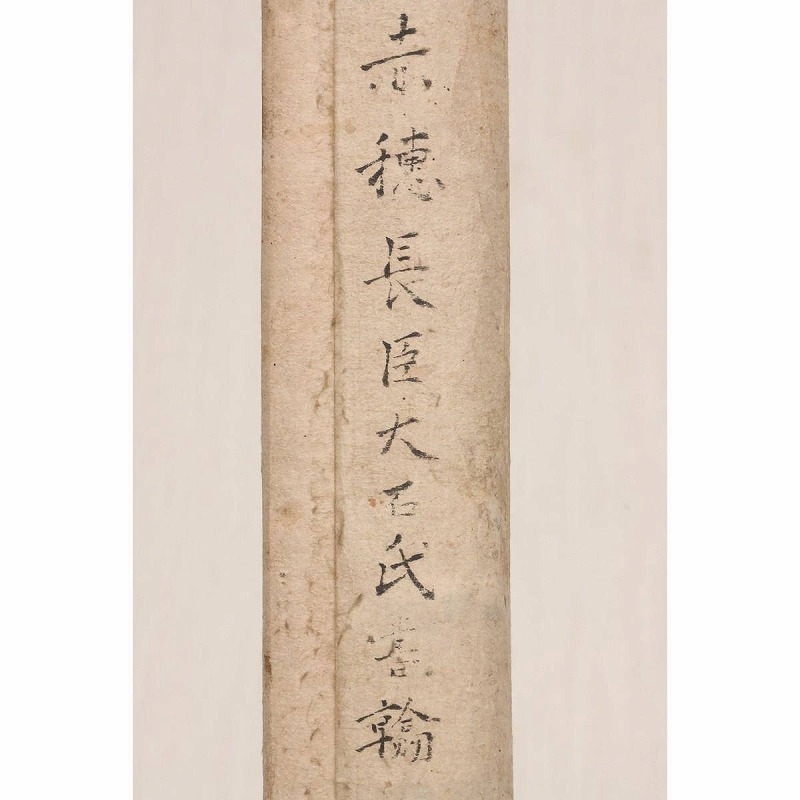 赤穂長臣大石氏書翰